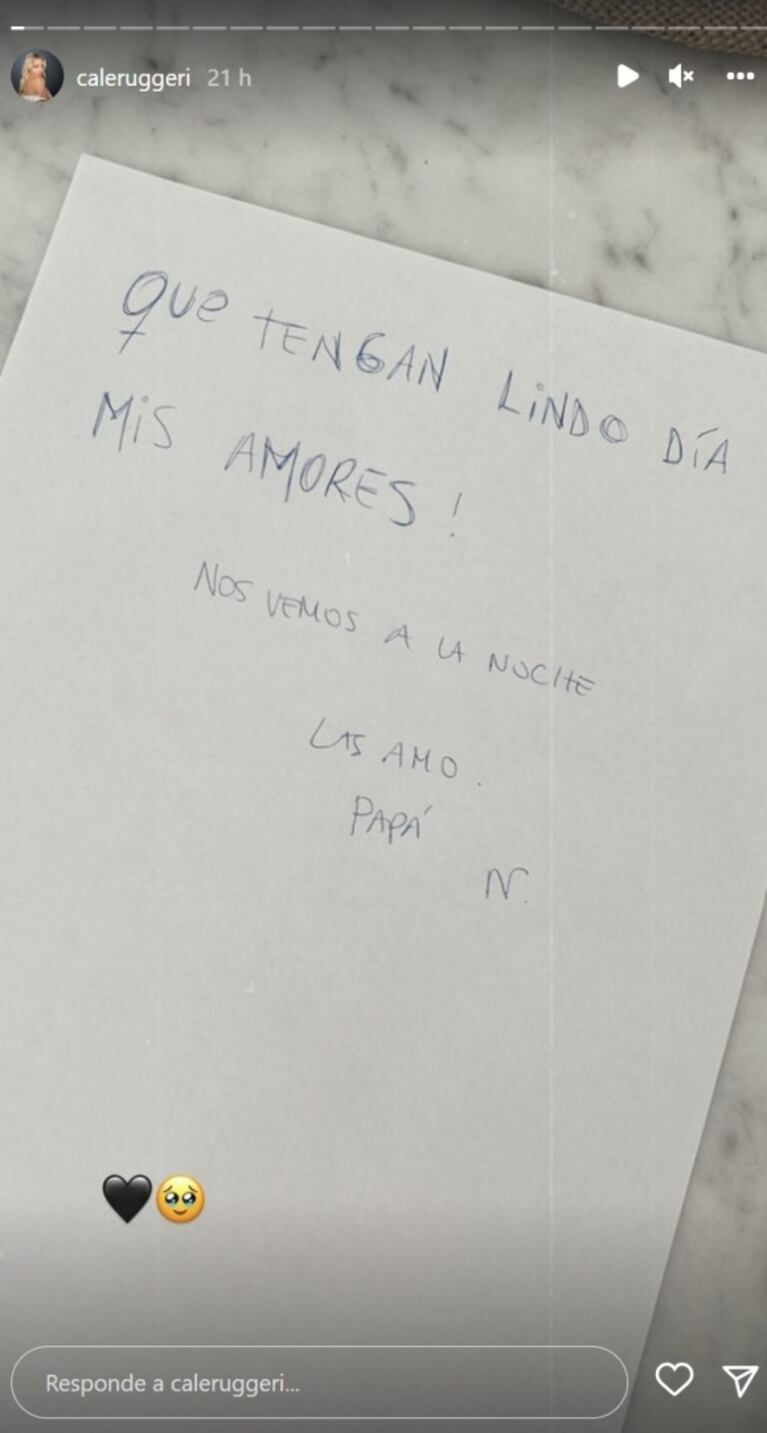 caleruggeri 21 h
Que TENGAN LiNDO DÍA
MiS AMORES!
NOS VEMOS A LA NOCHE
LAS AMO.
PAPÁ
N.
Responde a caleruggeri...